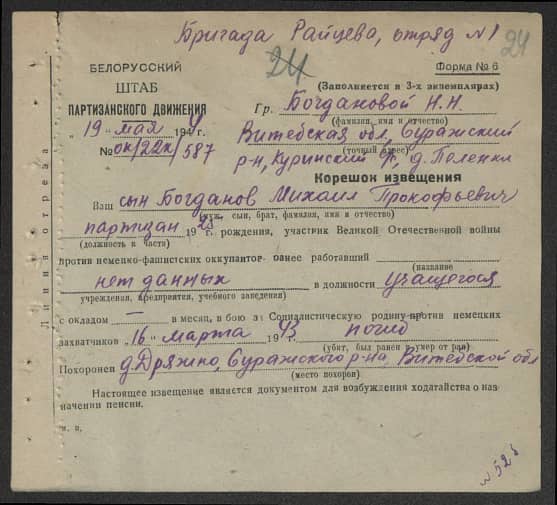 Бригада Райцева, отряд №1
24
24
БЕЛОРУССКИЙ
ШТАБ
ПАРТИЗАНСКОГО ДВИЖЕНИЯ
Форма № 6
(Заполняется в 3-х экземплярах)
Гр. Богдановой Н.Н.
(фамилия, имя и отчество)
„19" мая 194 г.
Витебская обл, Суражский
(точный адрес)
№ ок/22к/587
р-н, Куринский с/с, д. Пеленки
Корешок извещения
Ваш сын Богданов Михаил Прокофьевич
(муж, сын, брат, фамилия, имя и отчество)
партизан 19 г. рождения, участник Великой Отечественной войны
(должность в части)
против немецко-фашистских оккупантов ранее работавший
(название
нет данных в должности учащегося
учреждения, предприятия, учебного заведения)
с окладом — в месяц, в бою за Социалистическую родину против немецких
захватчиков „16" марта 1943 погиб
(убит, был ранен и умер от ран)
Похоронен д. Дряжно, Суражского р-на, Витебской обл
(место похорон)
Настоящее извещение является документом для возбуждения ходатайства о назначении пенсии.
м. п.
Линия отреза